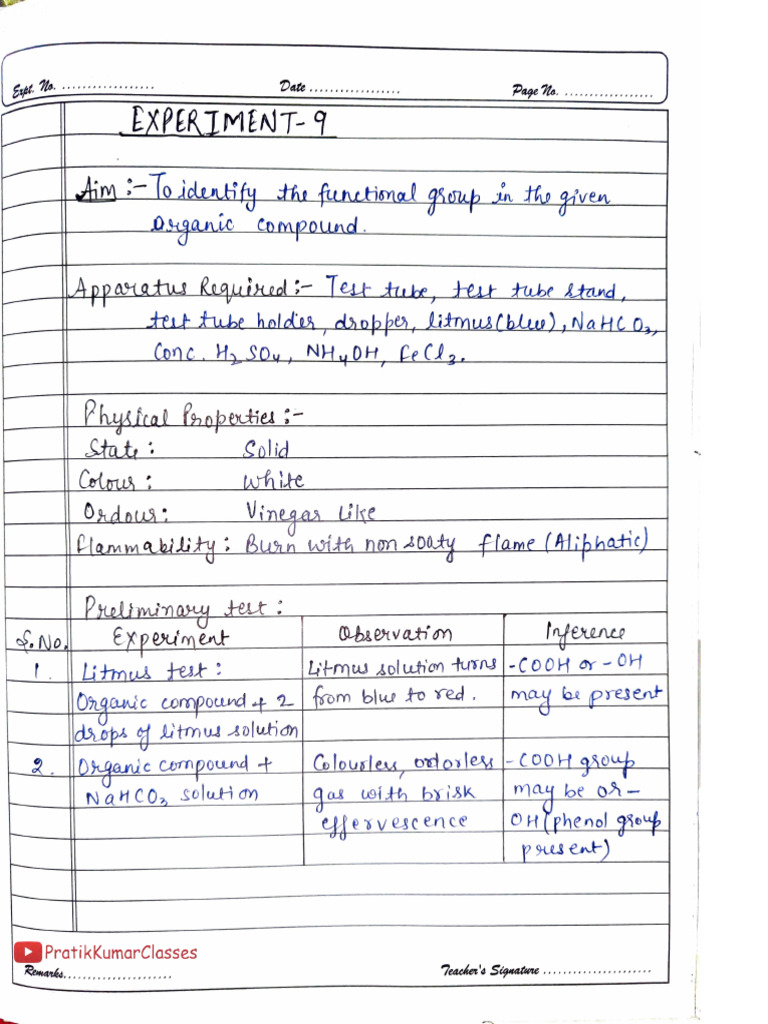 Expt. No. .................. Date .................. Page No. ..................
EXPERIMENT-9
Aim :- To identify the functional group in the given
organic compound.
Apparatus Required :- Test tube, test tube stand,
test tube holder, dropper, litmus (blue), NaHCO3,
Conc. H2SO4, NH4OH, FeCl3.
Physical Properties :-
State : Solid
Colour : White
Ordour : Vinegar like
Flammability : Burn with non soaty flame (Aliphatic)
Preliminary test :
S.No. Experiment Observation Inference
1. Litmus test : Litmus solution turns -COOH or -OH
Organic compound + 2 from blue to red. may be present
drops of litmus solution
2. Organic compound + Colourless, odorless -COOH group
NaHCO3 solution gas with brisk may be or-
effervescence OH (phenol group
present)
PratikKumarClasses
Remarks...................... Teacher's Signature ......................